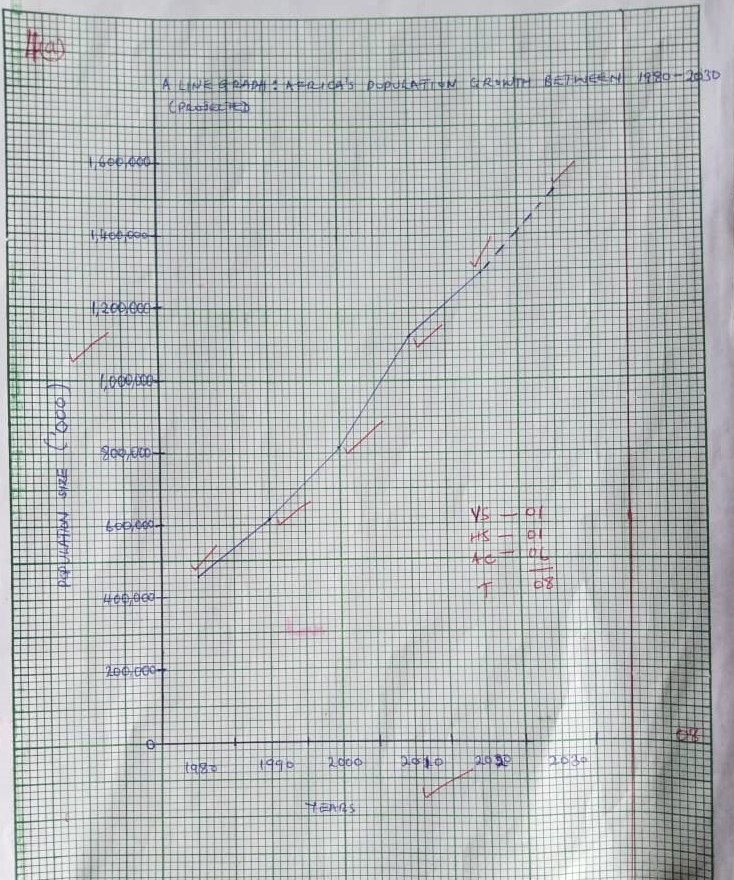 4(a)
A LINE GRAPH: AFRICA'S POPULATION GROWTH BETWEEN 1980-2030
(PROJECTED
1,600,000
1,400,000
1,200,000
1,000,000
800,000
600,000
400,000
200,000
0
POPULATION SIZE ('000)
1980 1990 2000 2010 2020 2030
YEARS
VS — 01
HS — 01
AC — 06
T 08
08